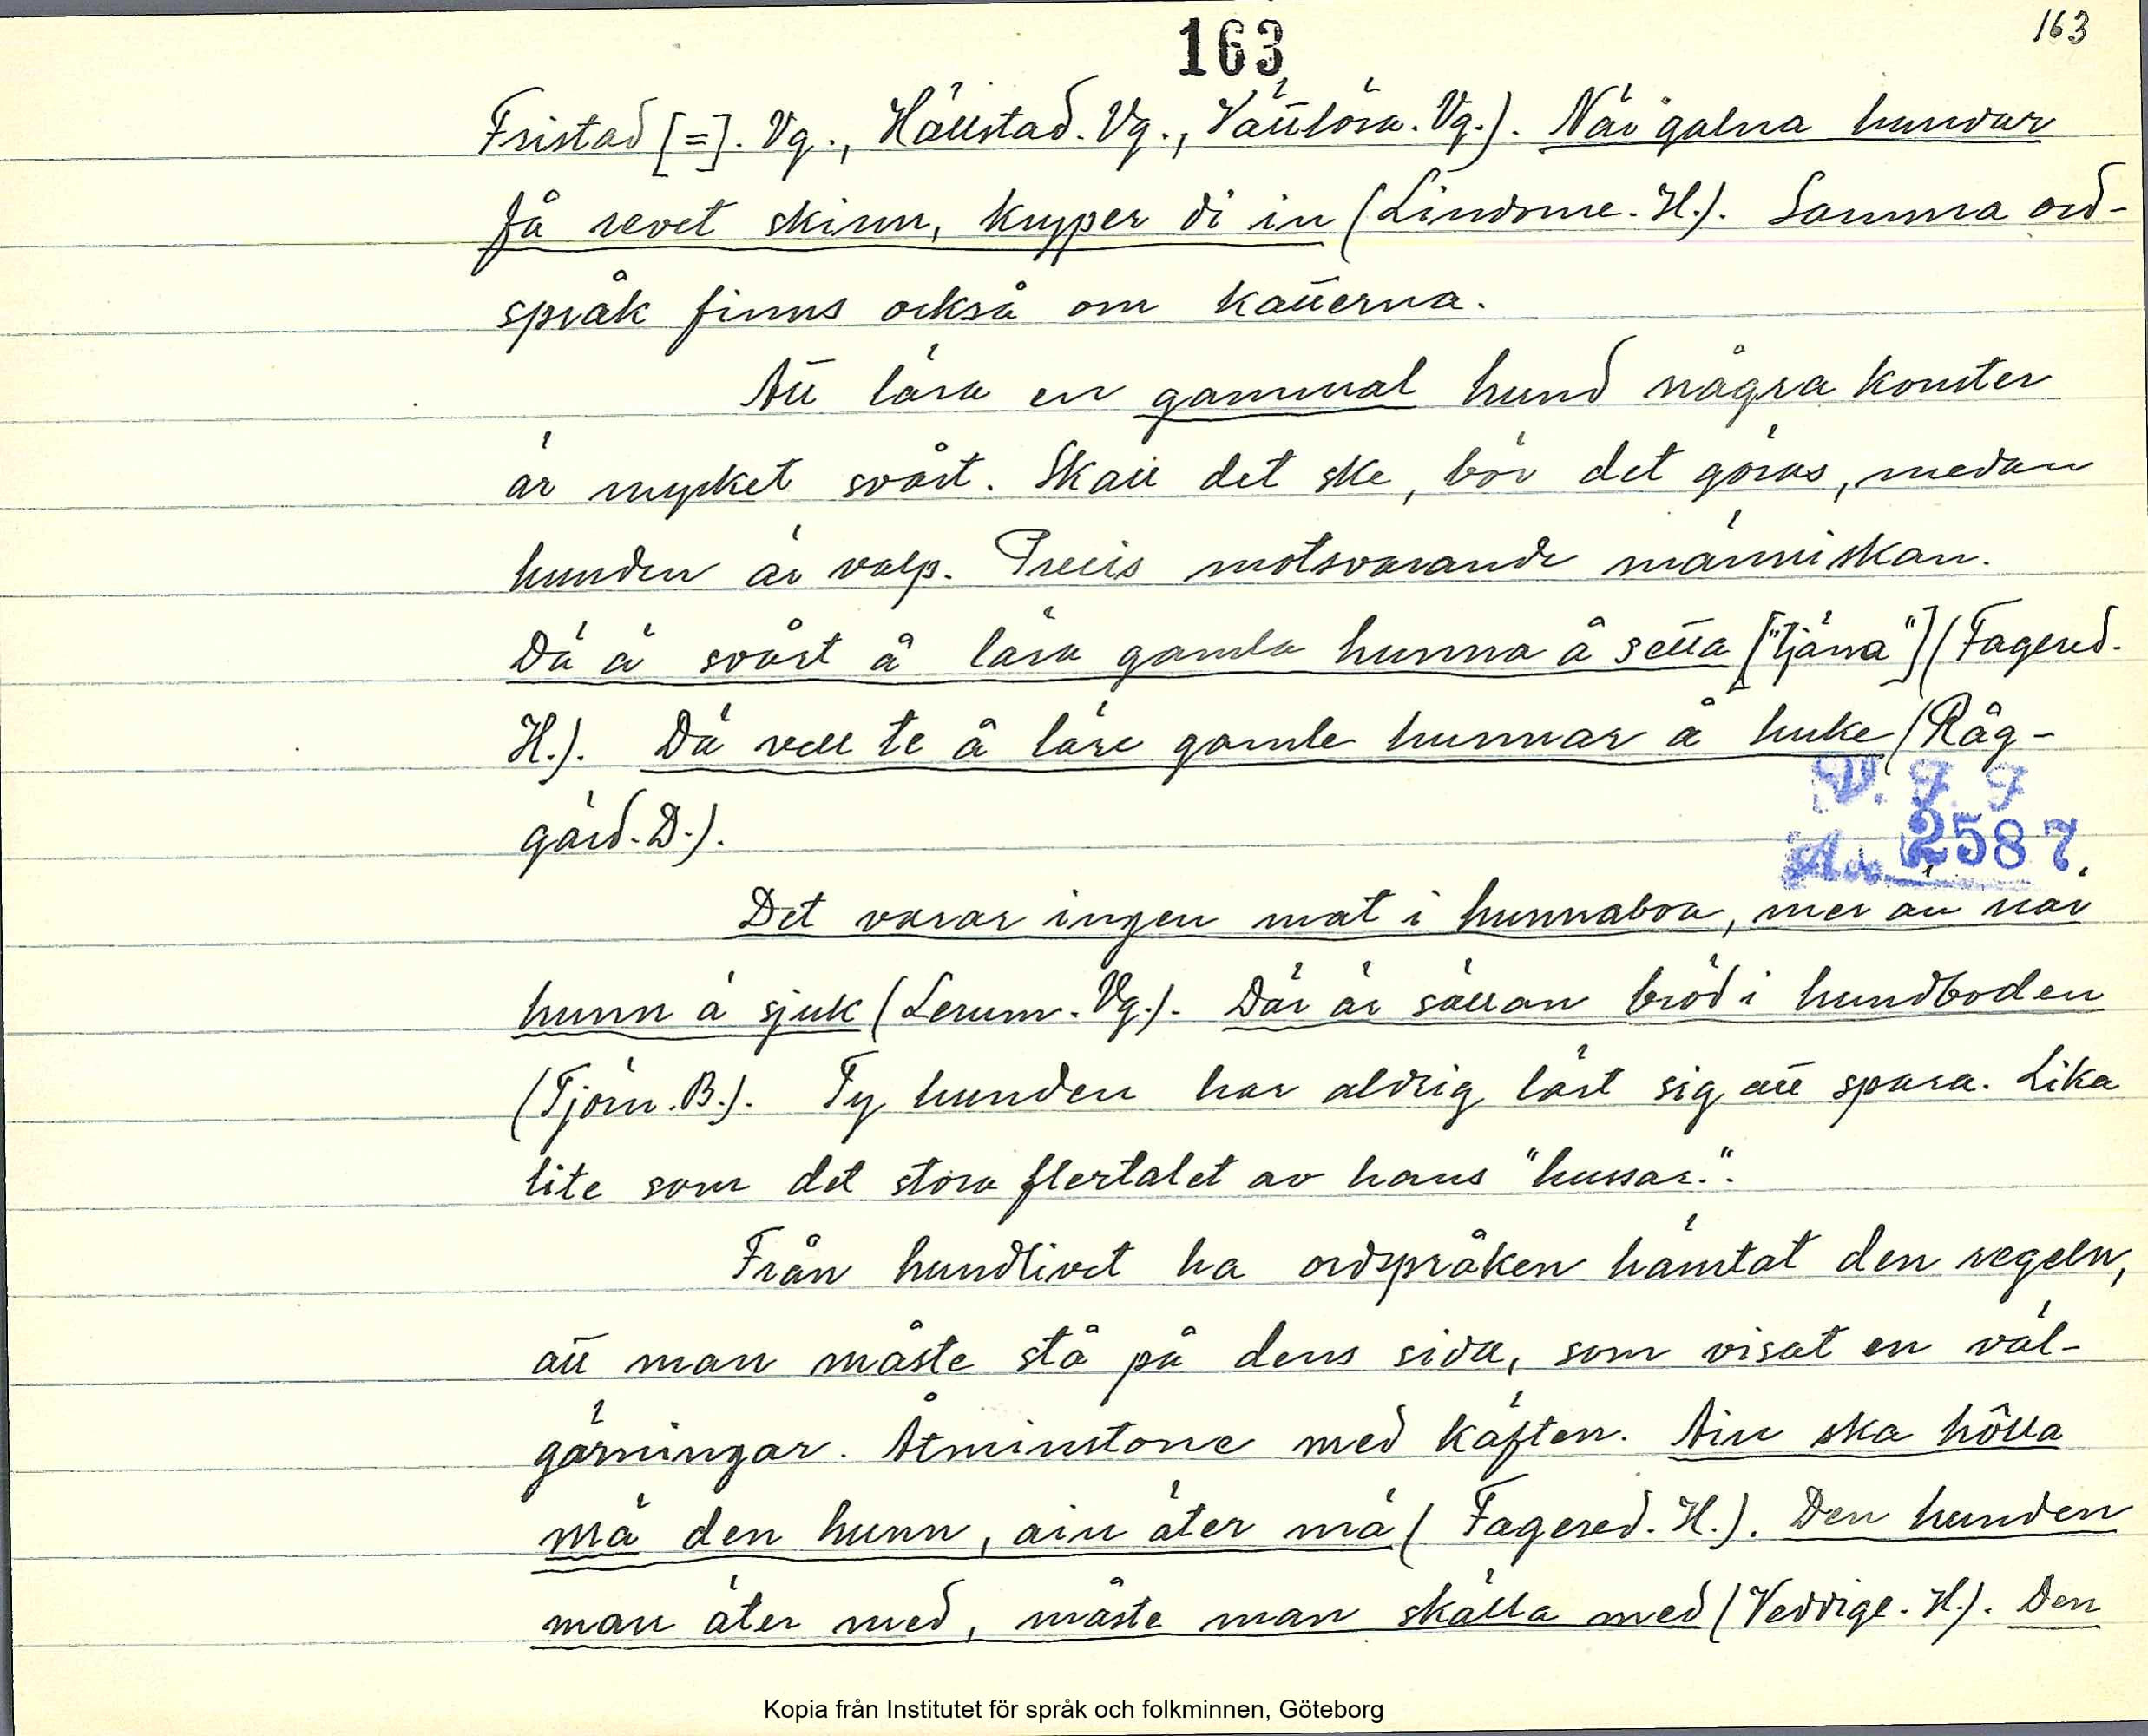 163
163
Fristad [=]. Vg., Hällstad. Vg., Vättlösa. Vg.). När galna hundar
få revet skinn, kryper di in (Lindome. H.). Samma ord-
språk finns också om katterna.
Att lära en gammal hund några konster
är mycket svårt. Skall det ske, bör det göras, medan
hunden är valp. Precis motsvarande människan.
Dä ä svårt å lära gamla hunna å setta ["tjäna"] (Fagered.
H.). Dä vell te å läre gamle hunnar å huke (Råg-
gärd. D.).
V. F. F
Acc. 2587.
Det varar ingen mat i hunnaboa, mer än när
hunn ä sjuk (Lerum. Vg.). Där är sällan bröd i hundboden
(Tjörn. B.). Ty hunden har aldrig lärt sig att spara. Lika
lite som det stora flertalet av hans "hussar.".
Från hundlivet ha ordspråken hämtat den regeln,
att man måste stå på dens sida, som visat en väl-
gärningar. Åtminstone med käften. Ain ska hôlla
mä den hunn, ain äter mä (Fagered. H.). Den hunden
man äter med, måste man skälla med (Veddige. H.). Den
Kopia från Institutet för språk och folkminnen, Göteborg